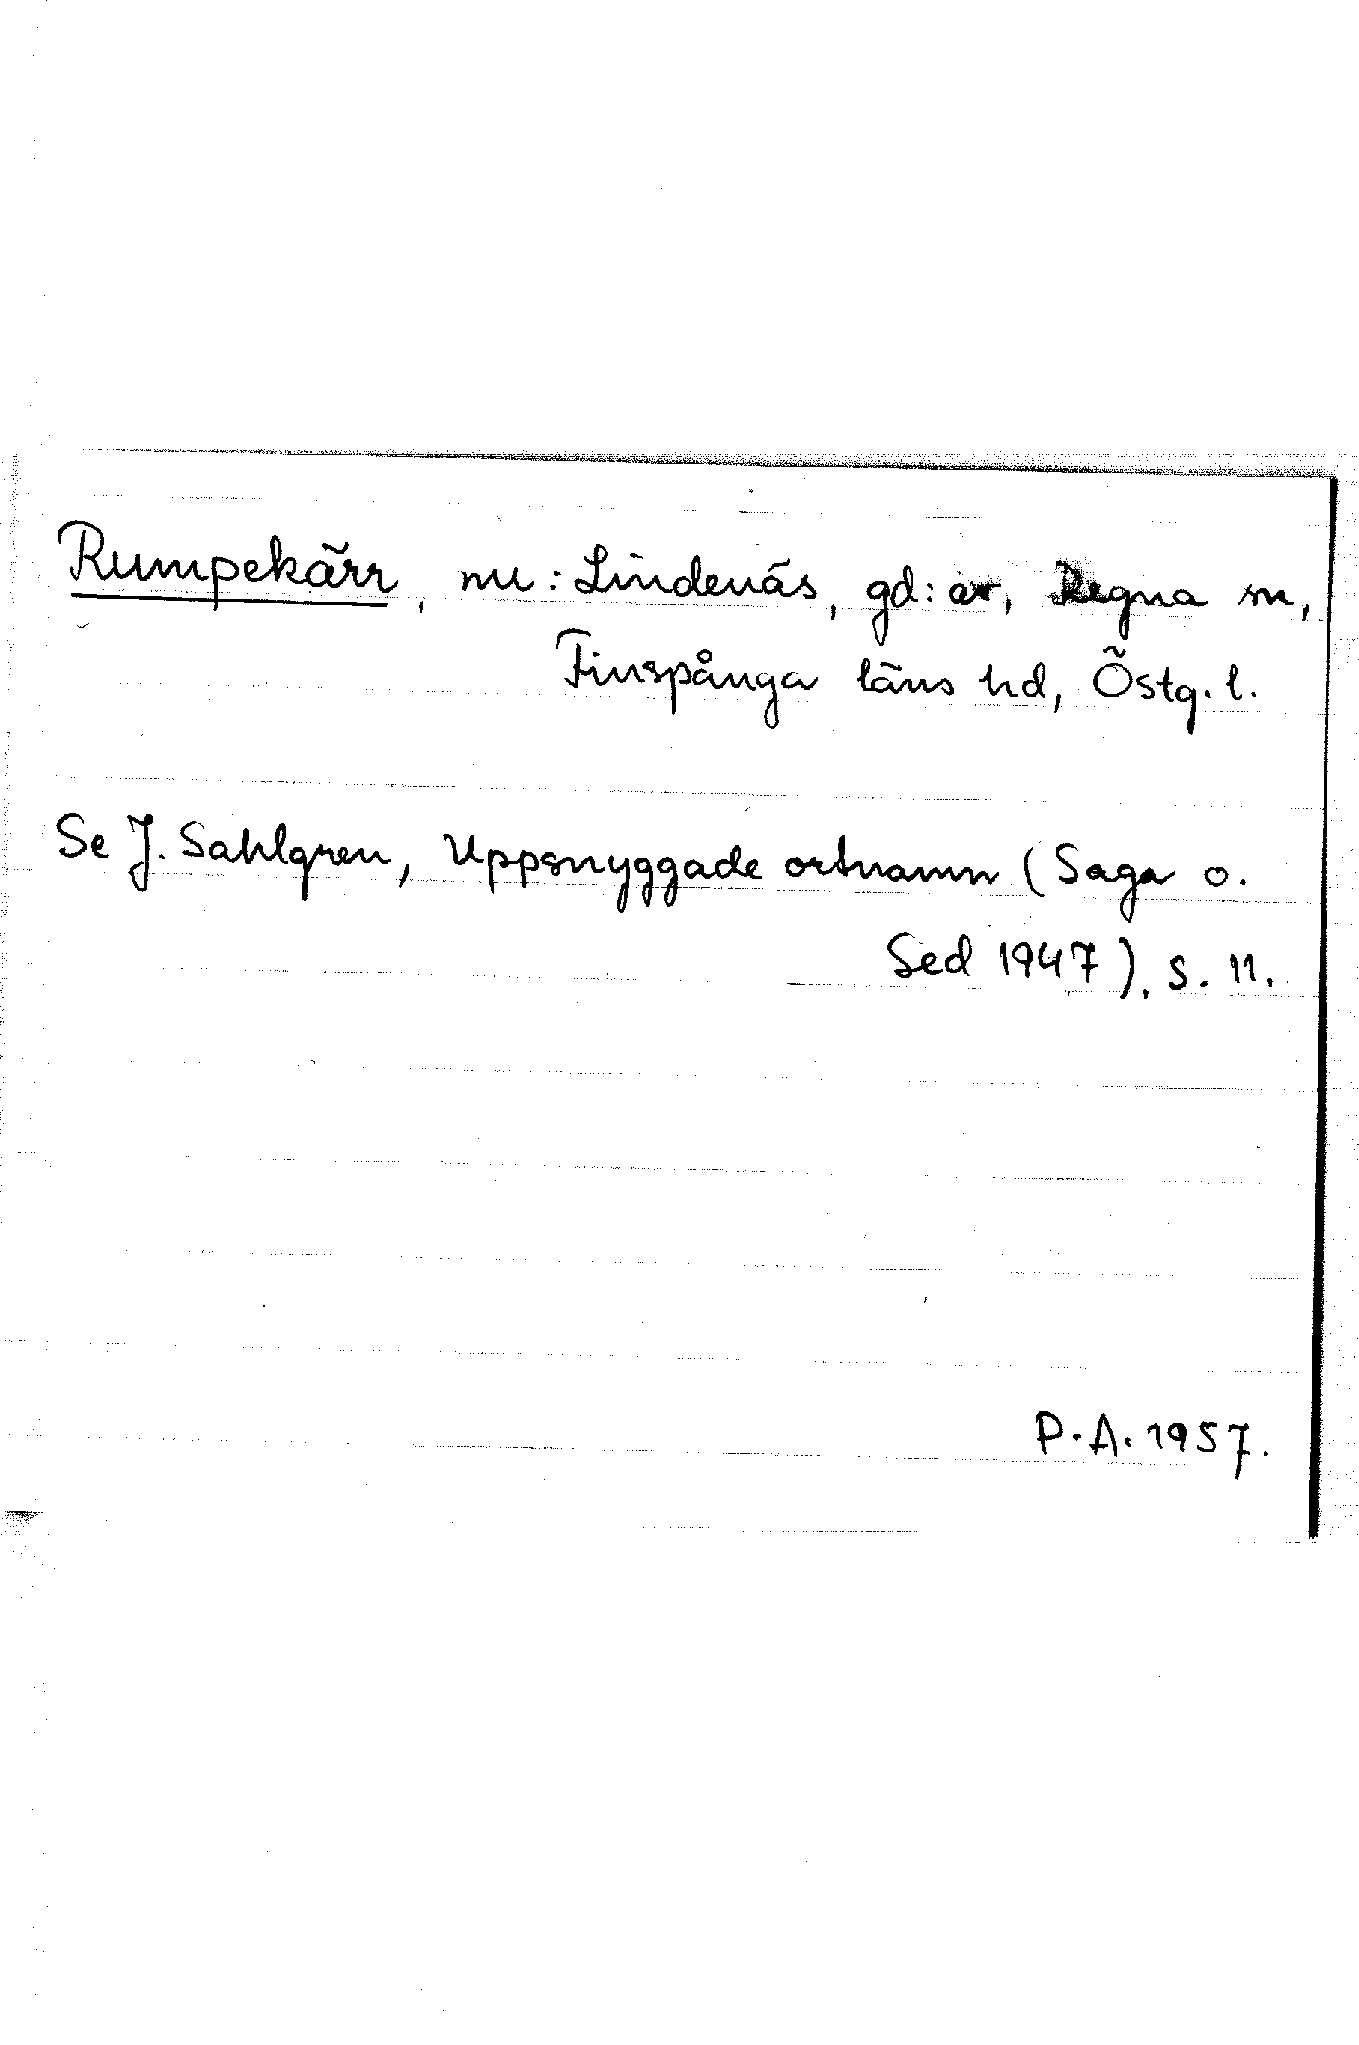 Rumpekärr, nu: Lindenäs, gd: ar, Regna sn,
Finspånga läns hd, Östg. l.
Se J. Sahlgren, Uppsnyggade ortnamn (Saga o.
Sed 1947), s. 11.
P.A. 1957.